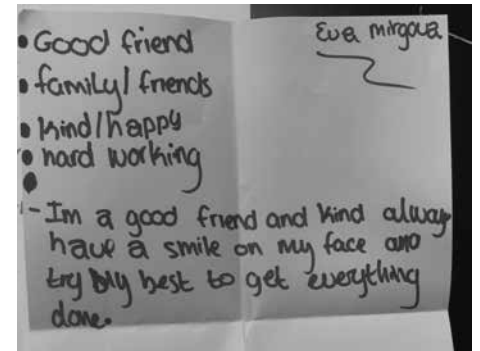 Eva mirgova
• Good friend
• family/ friends
• kind/happy
• hard working
•
- Im a good friend and kind always
have a smile on my face and
try my best to get everything
done.